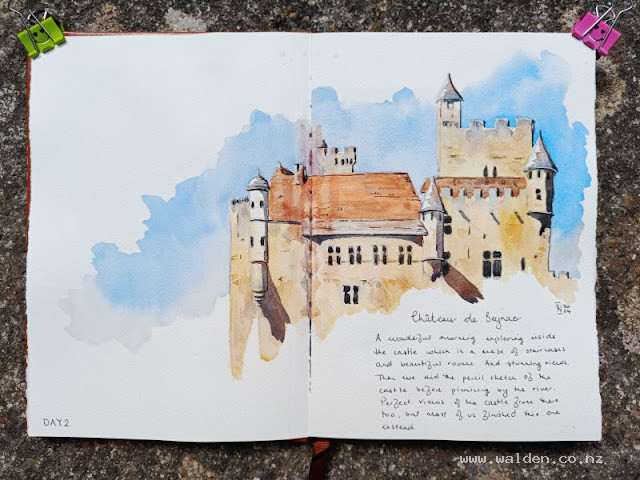 Château de Beynac
A wonderful morning exploring inside
the castle which is a maze of staircases
and beautiful rooms. And stunning views.
Then we did the pencil sketch of the
castle before picnicing by the river.
Perfect views of the castle from there
too, but most of us finished this one
instead.
DAY 2
www.walden.co.nz